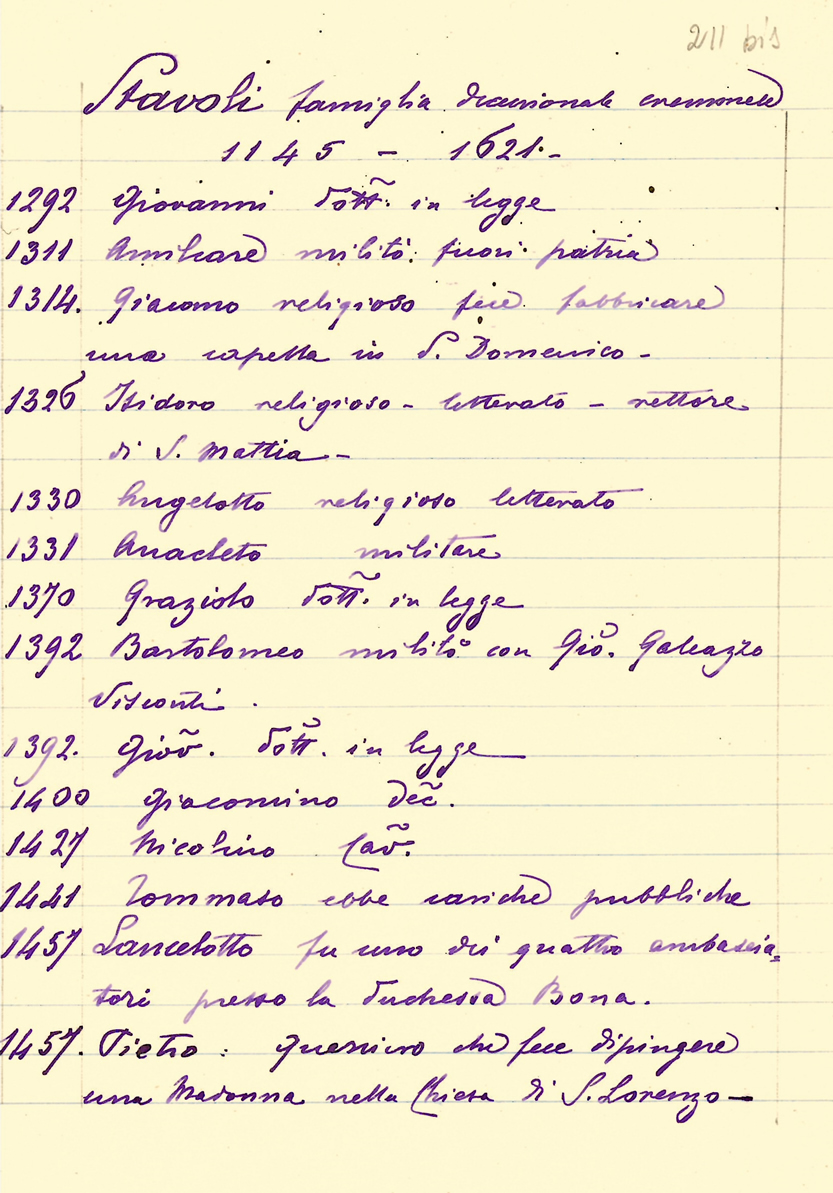 211 bis
Stavoli famiglia decurionale cremonese
1145 - 1621.-
1292 Giovanni dott̃. in legge
1311 Amilcare militò fuori patria
1314. Giacomo religioso fece fabbricare
una capella in S. Domenico -
1326 Isidoro religioso - letterato - rettore
di S. Mattia -
1330 Angelotto religioso letterato
1331 Anacleto militare
1370 Graziolo dott̃. in legge
1392 Bartolomeo militò con Giõ. Galeazzo
Visconti.
1392. Gioṽ. dott̃. in legge
1400 Giacomino dec̃.
1427 Nicolino Caṽ.
1441 Tommaso ebbe cariche pubbliche
1457 Lancelotto fu uno dei quattro ambascia=
tori presso la duchessa Bona.
1457. Pietro : che fece dipingere
una Madonna nella Chiesa di S. Lorenzo -